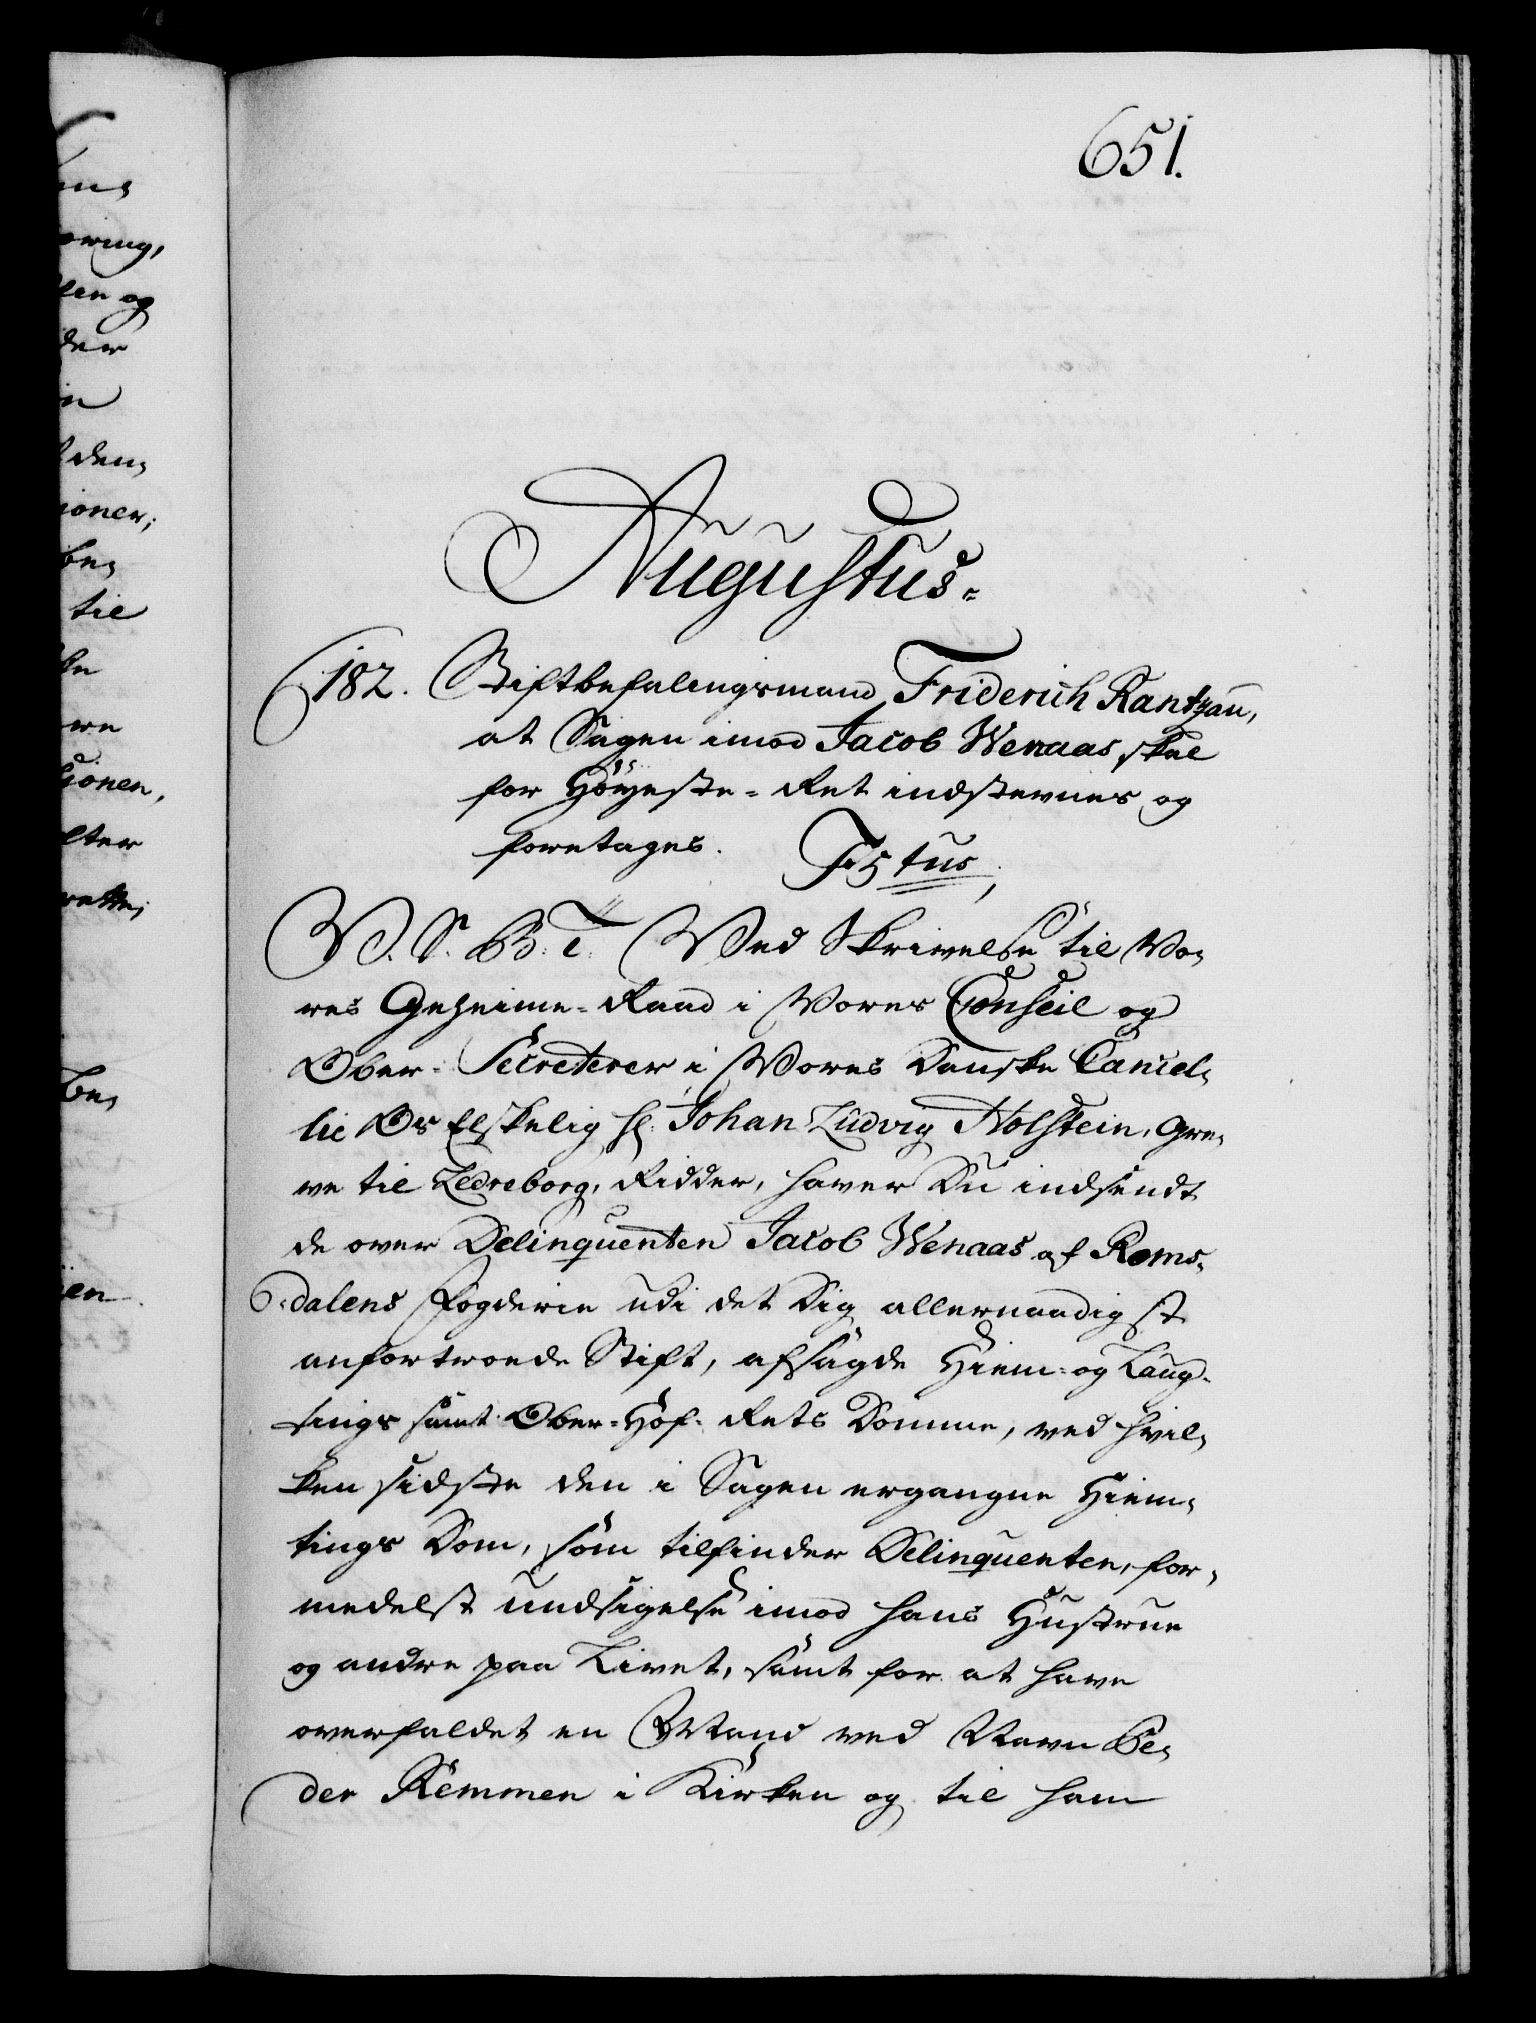 651.
Augustus.
182. Stiftbefalingsmand Friderich Rantzau,
at Sagen imod Jacob Wenaas skal
for Höyeste-Ret indstevnes og
foretages. Festus,
V. S. B: T: Ved Skrivelse til Vo-
res Geheime-Raad i Vores Conseil og
Ober-Secreterer i Vores Danske Cancel-
lie Os Elskelig Hr: Johan Ludvig Holstein, Gre-
ve til Ledreborg, Ridder, haver Du indsendt
de over Delinquenten Jacob Wenaas af Roms-
dalens Fogderie udi det Dig allernaadigst
anfortroede Stift, afsagde Hiem- og Laug-
tings samt Ober-Hof-Rets Domme, ved hvil-
ken sidste den i Sagen ergangne Hiem-
tings Dom, som tilfinder Delinquenten, for-
medelst undsigelse imod hans Hustrue
og andre paa Livet, samt for at have
overfaldet en Mand ved Navn Pe-
der Remmen i Kirken og til ham
ring,
len og
der
den,
ioner,
be,
til
ionen,
lter
rette,
be,
en